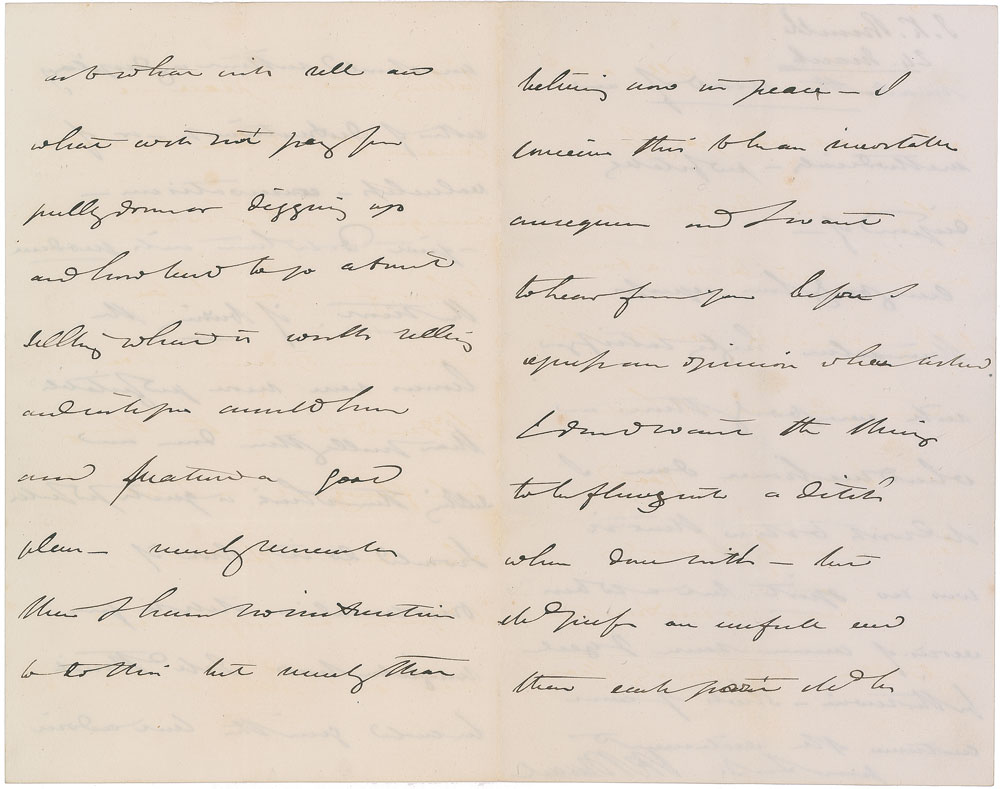 as to what will sell and
what will not pay for
pulling down or digging up
and how best to go about
selling what is worth selling
and
and a good
plan — merely remember
that I have no instructions
to do this but merely that
believing now in peace — I
conceive this to be an inevitable
consequence and I want
to hear from you before I
express an opinion when asked.
I dont want the thing
to be flung into a ditch
when done with — but
should prefer an useful end
that each part should be